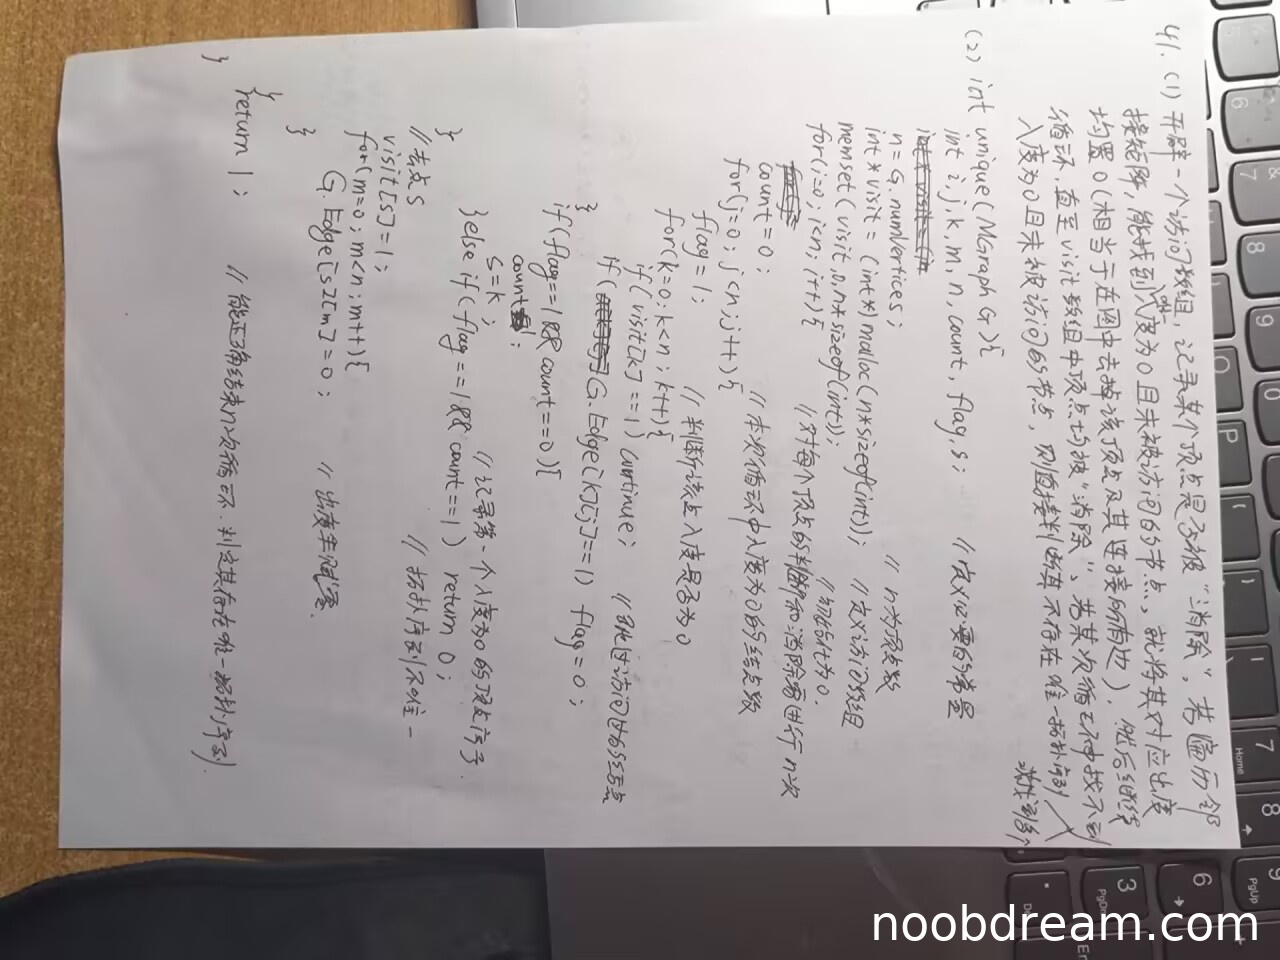 41. (1) 开辟一个访问数组，记录某个顶点是否被“消除”。若遍历邻
接矩阵，能找到唯一入度为0且未被访问的节点，就将其对应出度
均置0（相当于在图中去掉该顶点及其连接的有边），然后继续
循环.直至visit数组中顶点均被“消除”、若某次循环中找不到
入度为0且未被访问的节点，则直接判断其不存在唯一拓扑序列
或找到多个
(2) int unique(MGraph G){
int i,j,k,m,n,count,flag,s; //定义必要的常量
n=G.numVertices; //n为顶点数
int*visit=(int*)malloc(n*sizeof(int)); //定义访问数组
memset(visit,0,n*sizeof(int)); //初始化为0.
for(i=0;i<n;i++){ //对每个顶点的判断和消除需进行n次
count=0; //本次循环中入度为0的结点数
for(j=0;j<n;j++){
flag=1; //判断该点入度是否为0
for(k=0;k<n;k++){
if(visit[k]==1) continue; //跳过访问过的结点
if(G.Edge[k][j]==1) flag=0;
}
if(flag==1&&count==0){
count=1;
s=k; //记录第一个入度为0的顶点序号.
}else if(flag==1&&count==1) return 0; //拓扑序列不唯一
}
//去点s
visit[s]=1;
for(m=0;m<n;m++){
G.Edge[s][m]=0; //出度车赋零.
}
}
return 1; //能正确结束n次循环.判定其存在唯一拓扑序列.
}
5
6
7
8
9
O
0
P
7
Home
8
9
PgUp
6
3
PgDn
noobdream.com